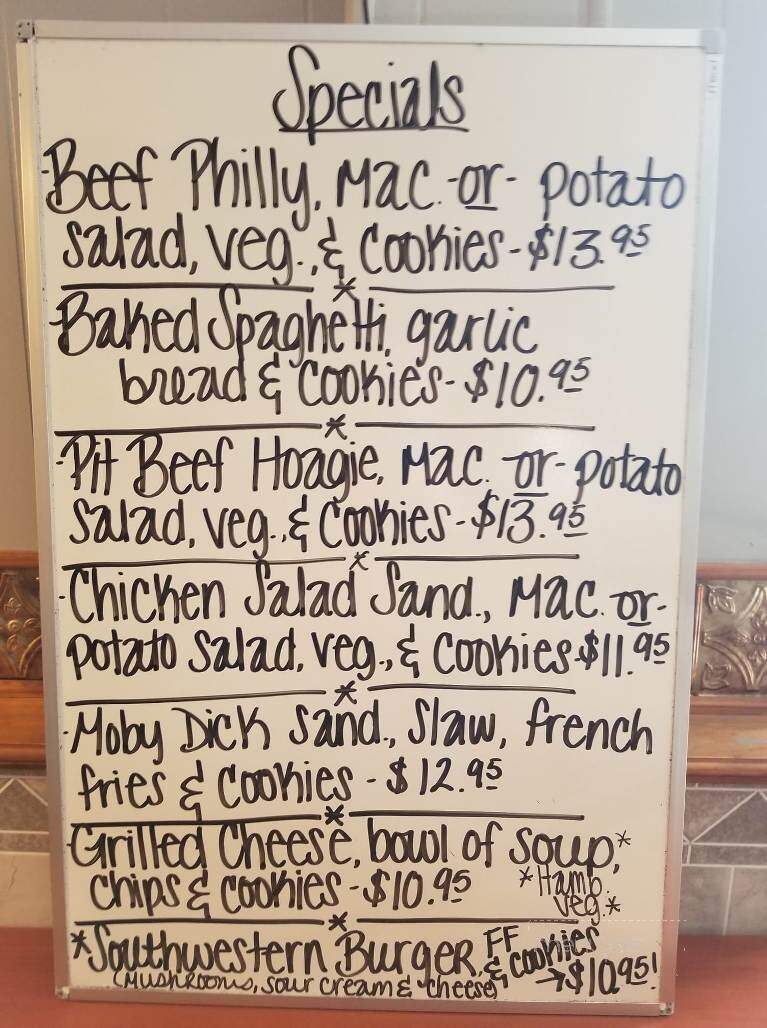 Specials
-Beef Philly, Mac. -or- potato
salad, veg., & Cookies - $13.95
*
-Baked Spaghetti, garlic
bread & Cookies - $10.95
*
-Pit Beef Hoagie, Mac. -or- potato
Salad, veg., & Cookies - $13.95
*
-Chicken Salad Sand., Mac. -or-
potato Salad, veg., & Cookies $11.95
*
-Moby Dick Sand., Slaw, french
fries & Cookies - $12.95
*
-Grilled Cheese, bowl of soup,*
chips & cookies - $10.95 *Hamb.
veg.*
*
*Southwestern Burger, FF
& cookies
(Mushrooms, sour cream & cheese) → $10.95!